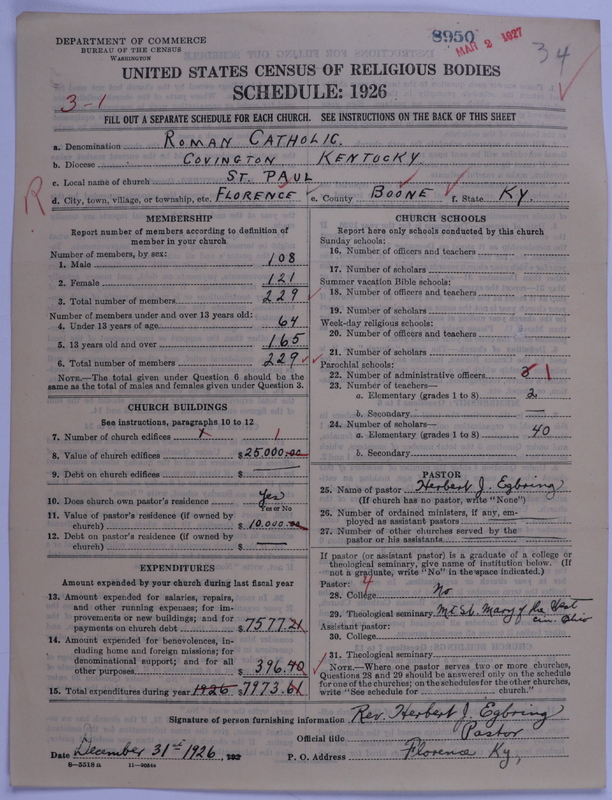 8950
MAR 2 1927
34
DEPARTMENT OF COMMERCE
BUREAU OF THE CENSUS
WASHINGTON
UNITED STATES CENSUS OF RELIGIOUS BODIES
SCHEDULE: 1926
3-1
FILL OUT A SEPARATE SCHEDULE FOR EACH CHURCH. SEE INSTRUCTIONS ON THE BACK OF THIS SHEET
a. Denomination ROMAN CATHOLIC.
b. Diocese COVINGTON KENTOCKY.
c. Local name of church ST. PAUL
R
d. City, town, village, or township, etc. FLORENCE e. County BOONE f. State KY.
MEMBERSHIP
Report number of members according to definition of
member in your church
Number of members, by sex:
1. Male 108
2. Female 121
3. Total number of members 229
Number of members under and over 13 years old:
4. Under 13 years of age 64
5. 13 years old and over 165
6. Total number of members 229
NOTE.—The total given under Question 6 should be the
same as the total of males and females given under Question 3.
CHURCH BUILDINGS
See instructions, paragraphs 10 to 12
7. Number of church edifices 1
8. Value of church edifices $25,000.00
9. Debt on church edifices $ —
10. Does church own pastor's residence Yes
Yes or No
11. Value of pastor's residence (if owned by
church) $10.000.00
12. Debt on pastor's residence (if owned by
church) $ —
EXPENDITURES
Amount expended by your church during last fiscal year
13. Amount expended for salaries, repairs,
and other running expenses; for im-
provements or new buildings; and for
payments on church debt $7577.21
14. Amount expended for benevolences, in-
cluding home and foreign missions; for
denominational support; and for all
other purposes $396.40
15. Total expenditures during year 1926 $7973.61
CHURCH SCHOOLS
Report here only schools conducted by this church
Sunday schools:
16. Number of officers and teachers
17. Number of scholars
Summer vacation Bible schools:
18. Number of officers and teachers
19. Number of scholars
Week-day religious schools:
20. Number of officers and teachers
21. Number of scholars
Parochial schools:
22. Number of administrative officers 1
23. Number of teachers—
a. Elementary (grades 1 to 8) 2
b. Secondary —
24. Number of scholars—
a. Elementary (grades 1 to 8) 40
b. Secondary
PASTOR
25. Name of pastor Herbert J. Egbring
(If church has no pastor, write "None")
26. Number of ordained ministers, if any, em-
ployed as assistant pastors
27. Number of other churches served by the
pastor or his assistants
If pastor (or assistant pastor) is a graduate of a college or
theological seminary, give name of institution below. (If
not a graduate, write "No" in the space indicated.)
Pastor: 4
28. College No
29. Theological seminary Mt St. Mary of the West
Cin. Ohio
Assistant pastor:
30. College
31. Theological seminary
NOTE.—Where one pastor serves two or more churches,
Questions 28 and 29 should be answered only on the schedule
for one of the churches; on the schedules for the other churches,
write "See schedule for church."
Signature of person furnishing information Rev. Herbert J. Egbring
Official title Pastor
Date December 31st 1926, 192 P. O. Address Florence Ky,
8—5518 a